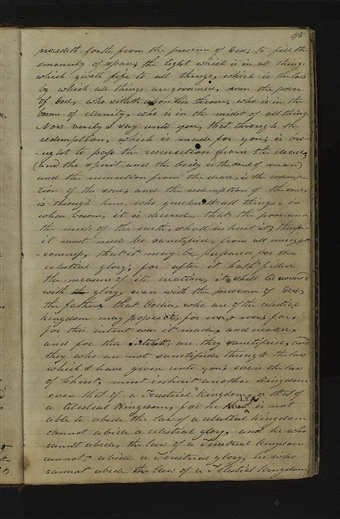 proceedeth forth from the presence of God, to fill the
emencity of space, the light which is in all things
which giveth life to all things, which is the law
by which all things are governed, even the power
of God, who sitteth upon his throne, who is in the
bosom of eternity, who is in the midst of all things
Now verily I say unto you, that through the
redemption, which is made for you, is
to pass the resurection from the dead,
and the spirit and the body is the soul of man
and the resurrection from the dead, is the redemp-
tion of the soul, and the redemption of the soul
is through him, who quickeneth all things, in
whose bosom, it is decreed, that the poor and
the meek of the earth, shall inherit it; therefore
it must needs be sanctified, from all unright-
eousness, that it may be prepared, for the
celestial glory; for after it hath filled
the measure of its creation, it shall be crowned
with glory, even with the presence of God,
the father, that bodies, who are of the celestial
kingdom may possess it, for ever & ever, for,
for this intent was it made, and created,
and for this intent, are they sanctified, and
they who are not sanctified, through the law
which I have given unto you, even the law
of Christ, must inherit another kingdom
even that of a Terestrial kingdom, or that of
a Telestial Kingdom, for he who is not
able to abide the law of a celestial kingdom
cannot abide a celestial glory, and he who
cannot abide, the law of a Terestrial kingdom
cannot, abide a Terestrial glory, he who
cannot abide the law of a Telestial kingdom,